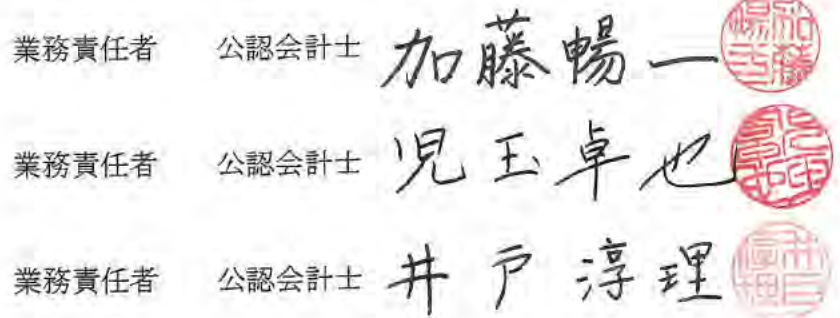 業務責任者 公認会計士 加藤暢一
業務責任者 公認会計士 児玉卓也
業務責任者 公認会計士 井戸淳理